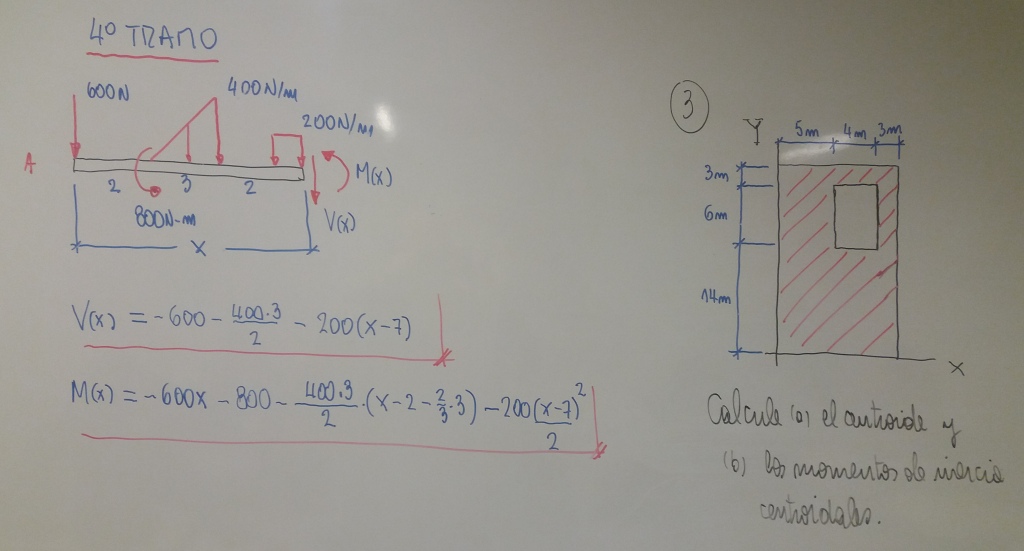 4º TRAMO
600N
400N/m
200N/m
A
2
3
2
M(x)
800N-m
V(x)
X
V(x) = -600 - 400·3/2 - 200(x-7)
M(x) = -600x - 800 - 400·3/2 · (x-2-2/3·3) - 200(x-7)²/2
3
Y
5m
4m
3m
3m
6m
14m
X
Calcule (a) el centroide y
(b) los momentos de inercia
centroidales.